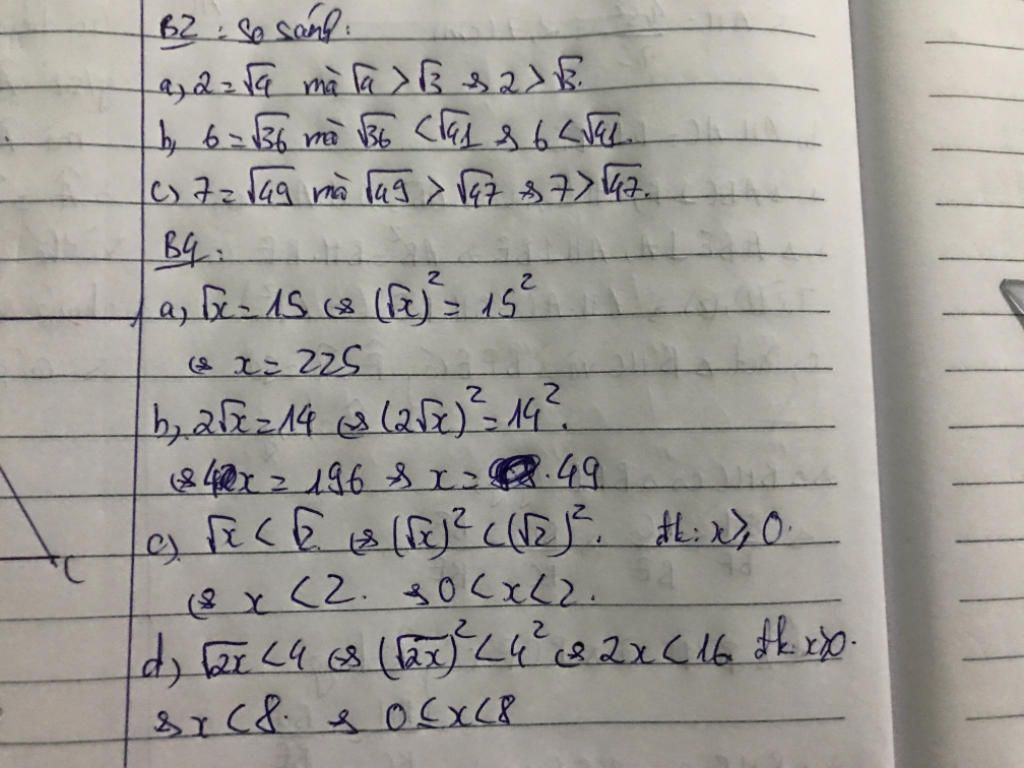 B2 : So sánh.
a, 2 = √4 mà √4 > √3 ⇒ 2 > √3.
b, 6 = √36 mà √36 < √41 ⇒ 6 < √41.
c, 7 = √49 mà √49 > √47 ⇒ 7 > √47.
B4 :
a, √x = 15 ⇔ (√x)² = 15²
⇔ x = 225
b, 2√x = 14 ⇔ (2√x)² = 14².
⇔ 4x = 196 ⇒ x = 49
c, √x < √2 ⇔ (√x)² < (√2)². đk: x ≥ 0.
⇔ x < 2. ⇒ 0 < x < 2.
d, √2x < 4 ⇔ (√2x)² < 4² ⇔ 2x < 16 đk: x ≥ 0.
⇒ x < 8. ⇒ 0 ≤ x < 8
C